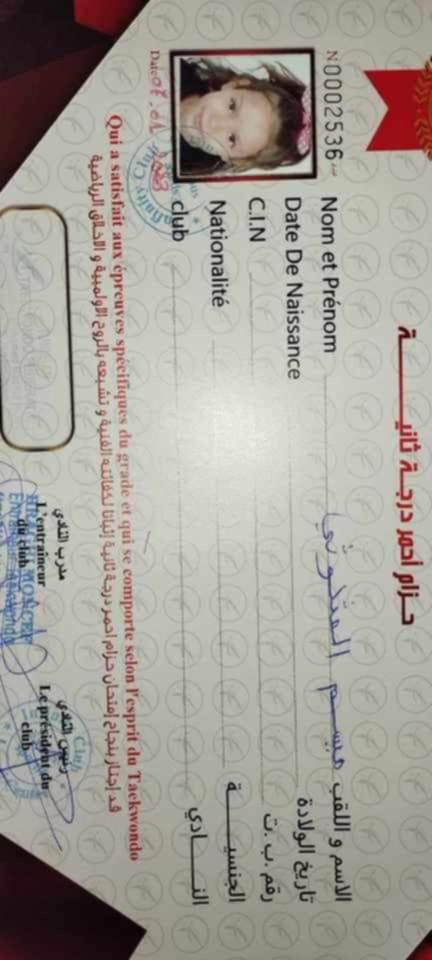 حزام أحمر درجة ثانيــــــة
N 0002536
Nom et Prénom ميسم المثلوثي الاسم و اللقب
Date De Naissance تاريخ الولادة
C.I.N رقم ب.ت
Nationalité الجنسيــــة
club النــــادي
Qui a satisfait aux épreuves spécifiques du grade et qui se comporte selon l'esprit du Taekwondo
قد إجتاز بنجاح إمتحان حزام احمر درجة ثانية إثباتا لكفائته الفنية و تشبعه بالروح الاولمبية و الاخلاق الرياضية
مدرب النادي
L'entraîneur
du club
رئيس النادي
Le président du
club